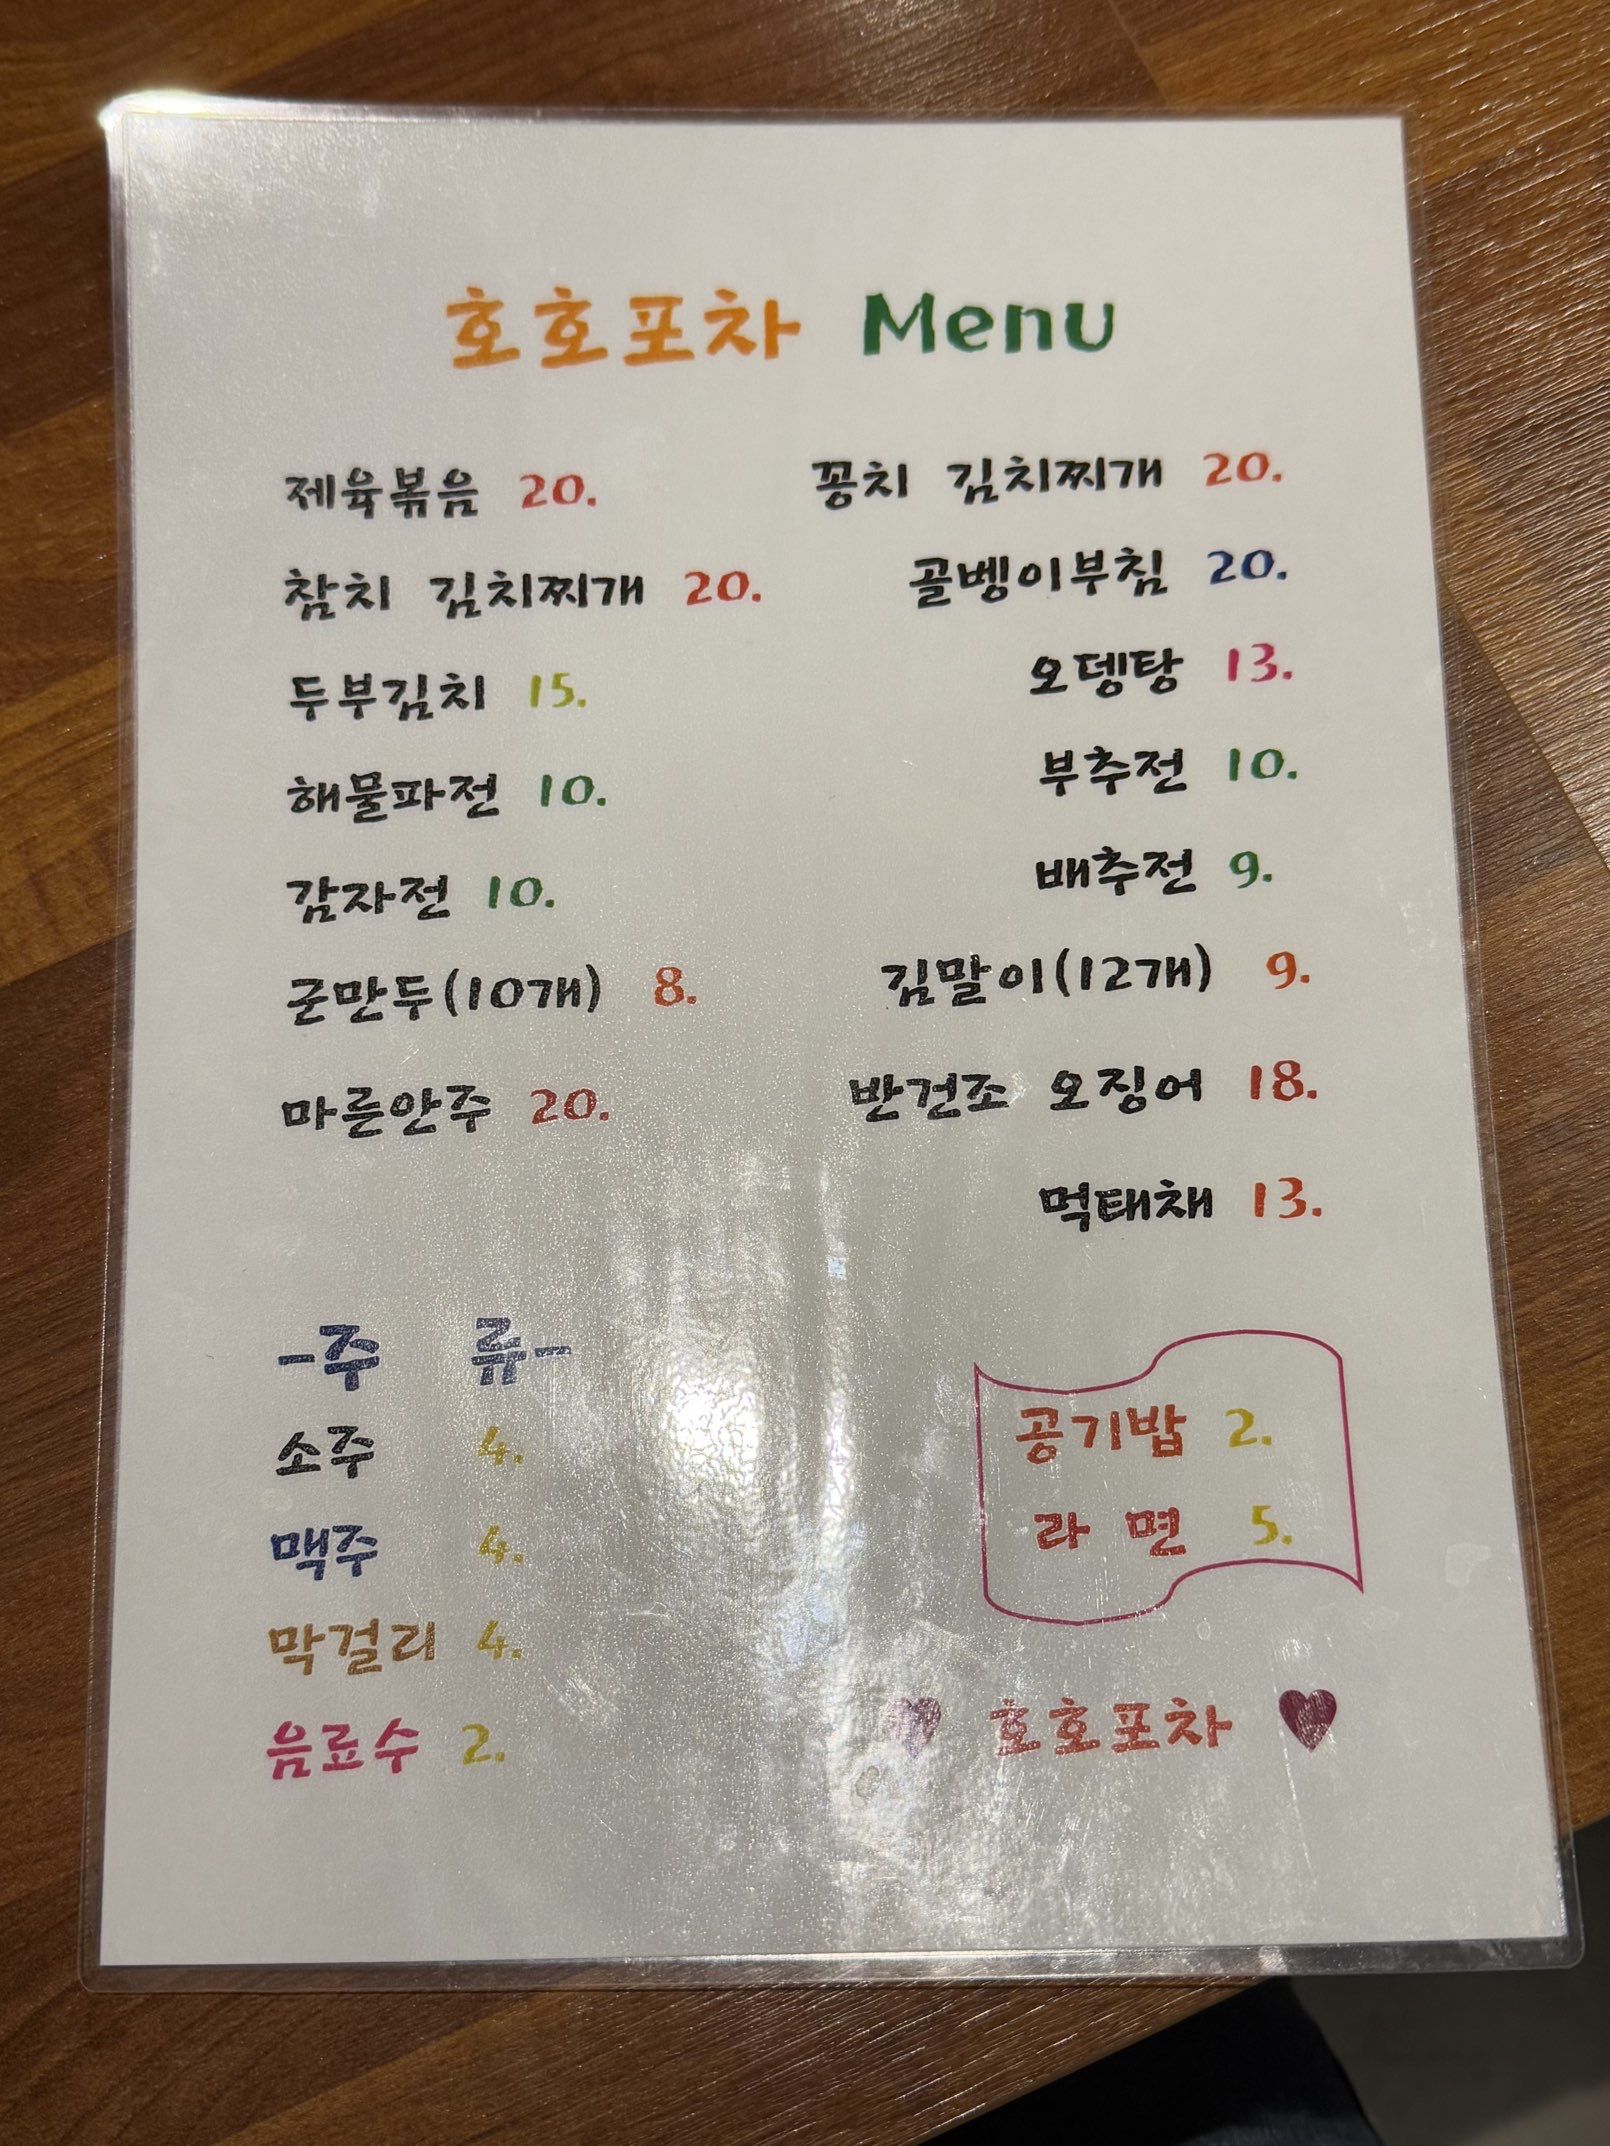 호호포차 Menu
제육볶음 20.
참치 김치찌개 20.
두부김치 15.
해물파전 10.
감자전 10.
군만두(10개) 8.
마른안주 20.
꽁치 김치찌개 20.
골벵이부침 20.
오뎅탕 13.
부추전 10.
배추전 9.
김말이(12개) 9.
반건조 오징어 18.
먹태채 13.
-주 류-
소주 4.
맥주 4.
막걸리 4.
음료수 2.
공기밥 2.
라 면 5.
♥ 호호포차 ♥